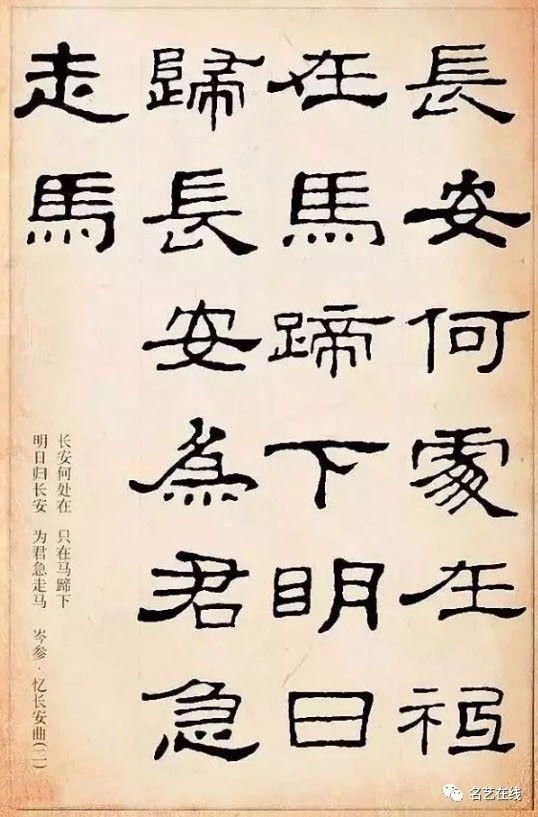 長安何處在祗
在馬蹄下明日
歸長安為君急
走馬
长安何处在 只在马蹄下
明日归长安 为君急走马 岑参·忆长安曲(二)
名艺在线